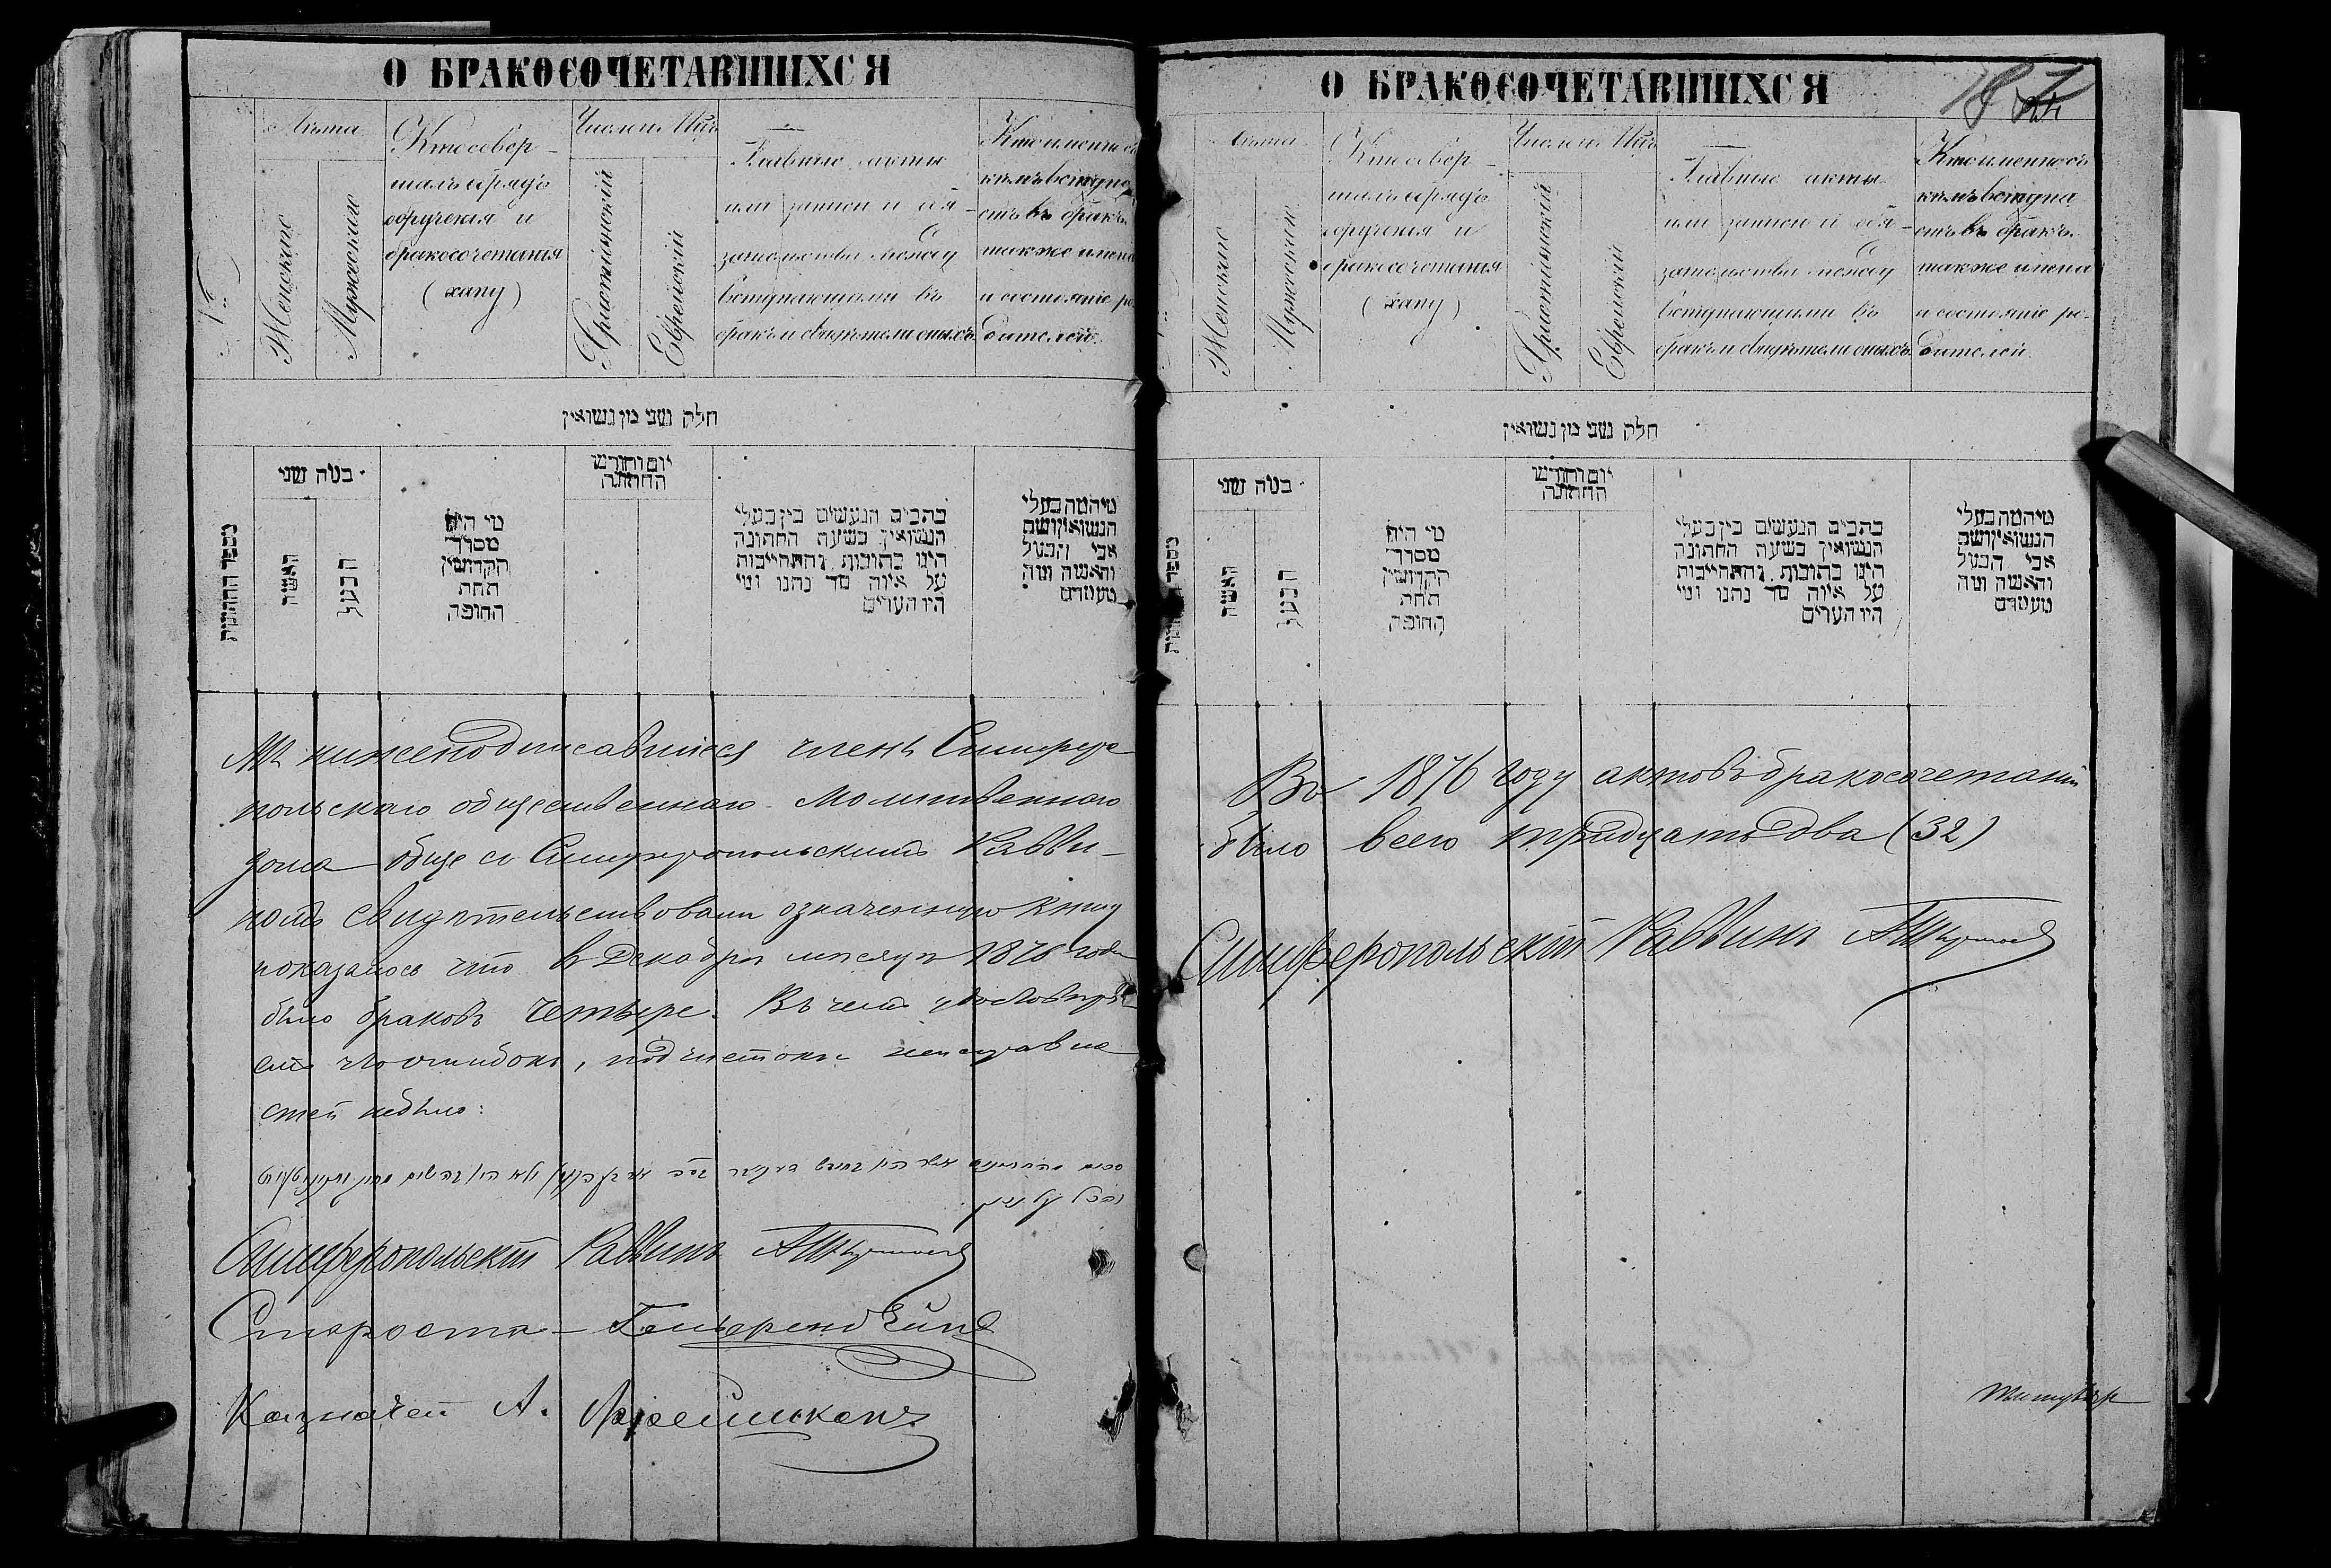 О БРАКОСОЧЕТАВШИХСЯ
№
Лѣта
Женскіе
Мужескіе
Кто совер-
шалъ обрядъ
обрученія и
бракосочетанія
(хапу)
Число и Мѣц
Христіанскій
Еврейскій
Главные акты
или записи и обя-
зательства между
вступающими въ
бракъ и свидѣтели оныхъ
Кто именно съ
кѣмъ вступа
етъ въ бракъ
также имена
и состояніе ро
дителей.
חלק שני מן נשואין
מספר החתונות
כמה שני
האשה
הבעל
מי היה
מסדר
הקדושין
תחת
החופה
יום וחודש
החתונה
כתבים הנעשים בין בעלי
הנשואין בשעת החתונה
היינו כתובות והתחייבות
על איזה סך נתנו ומי
היו העדים
מי המה בעלי
הנשואין ושם
אבי הבעל
והאשה ומה
מעמדם
Мы нижеподписавшіеся членъ Симферо
польскаго общественнаго Молитвеннаго
дома обще съ Симферопольскимъ Равви-
номъ свидѣтельствовали означенную книгу
показалось что въ Декабрѣ мѣсяцѣ 1876 года
было браковъ Четыре. Въ чемъ удостовѣря
емъ что ошибокъ, подчистокъ и неисправно
стей небыло:
Симферопольскій Раввинъ
Староста
Казначей А.
О БРАКОСОЧЕТАВШИХСЯ
187
Лѣта
Женскіе
Мужескіе
Кто совер-
шалъ обрядъ
обрученія и
бракосочетанія
(хапу)
Число и Мѣц
Христіанскій
Еврейскій
Главные акты
или записи и обя-
зательства между
вступающими въ
бракъ и свидѣтели оныхъ
Кто именно съ
кѣмъ вступа
етъ въ бракъ
также имена
и состояніе ро-
дителей.
חלק שני מן נשואין
כמה שני
האשה
הבעל
מי היה
מסדר
הקדושין
תחת
החופה
יום וחודש
החתונה
כתבים הנעשים בין בעלי
הנשואין בשעת החתונה
היינו כתובות והתחייבות
על איזה סך נתנו ומי
היו העדים
מי המה בעלי
הנשואין ושם
אבי הבעל
והאשה ומה
מעמדם
Въ 1876 году актовъ бракосочетаній
было всего тридцать два (32)
Симферопольскій Раввинъ